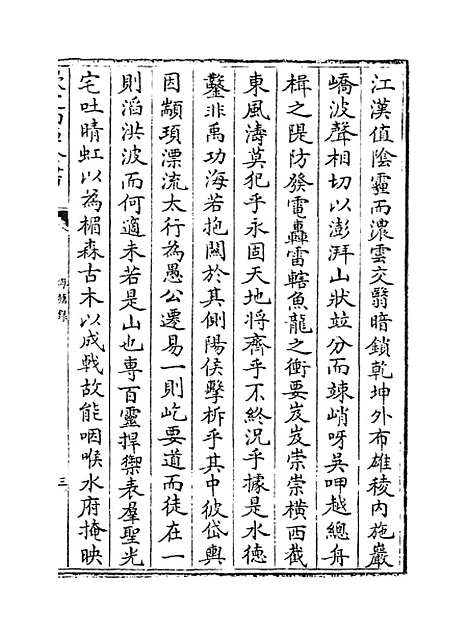 江漢值陰霾而濃雲交翳暗鎖乾坤外布雄稜内施巖
嶠波聲相切以澎湃山狀竝分而竦峭呀吳呷越總舟
楫之隄防發電轟雷轄魚龍之衝要岌岌崇崇橫西截
東風濤莫犯乎永固天地將齊乎不終況乎據是水德
鑿非禹功海若抱關於其側陽侯擊柝乎其中彼岱輿
因顓頊漂流太行為愚公遷易一則屹要道而徒在一
則滔洪波而何適未若是山也專百靈捍禦表羣聖光
宅吐晴虹以為楣森古木以成戟故能咽喉水府掩映
海塘錄
三